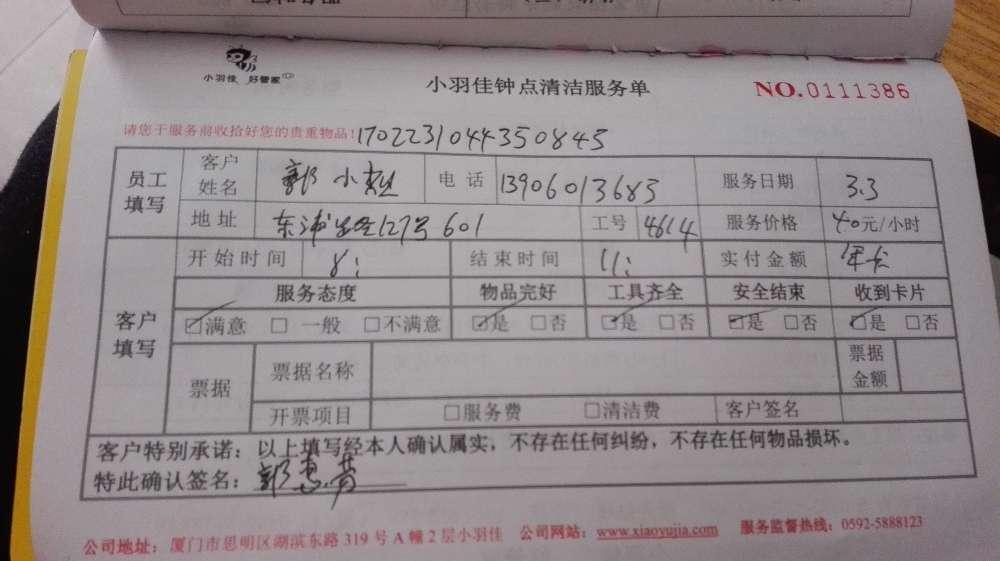 小羽佳 好管家
小羽佳钟点清洁服务单
NO.0111386
请您于服务前收拾好您的贵重物品!1702231044350845
员工填写 客户姓名 郭小姐 电话 13906013683 服务日期 3.3
地址 东浦 127号601 工号 4614 服务价格 40元/小时
客户填写 开始时间 8: 结束时间 11: 实付金额 年卡
服务态度 物品完好 工具齐全 安全结束 收到卡片
☑满意 □一般 □不满意 ☑是 □否 ☑是 □否 ☑是 □否 ☑是 □否
票据 票据名称 票据金额
开票项目 □服务费 □清洁费 客户签名
客户特别承诺：以上填写经本人确认属实，不存在任何纠纷，不存在任何物品损坏。
特此确认签名：郭惠
公司地址：厦门市思明区湖滨东路319号A幢2层小羽佳 公司网站：www.xiaoyujia.com 服务监督热线：0592-5888123